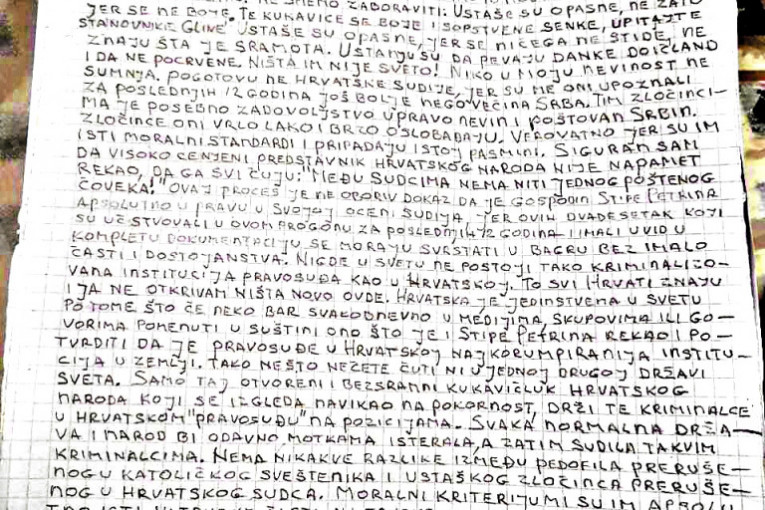 NE SMEMO ZABORAVITI: USTAŠE SU OPASNE, NE ZATO
JER SE NE BOJE. TE KUKAVICE SE BOJE I SOPSTVENE SENKE, UPITAJTE
STANOVNIKE GLINE. USTAŠE SU OPASNE, JER SE NIČEGA NE STIDE, NE
ZNAJU ŠTA JE SRAMOTA. USTANJU SU DA PEVAJU DANKE DOJČLAND
I DA NE POCRVENE. NIŠTA IM NIJE SVETO! NIKO U MOJU NEVINOST NE
SUMNJA. POGOTOVU NE HRVATSKE SUDIJE, JER SU ME ONI UPOZNALI
ZA POSLEDNJIH 12 GODINA JOŠ BOLJE NEGO VEĆINA SRBA. TIM ZLOČINCI-
MA JE POSEBNO ZADOVOLJSTVO UPRAVO NEVIN I POŠTOVAN SRBIN.
ZLOČINCE ONI VRLO LAKO I BRZO OSLOBAĐAJU. VEROVATNO JER SU IM
ISTI MORALNI STANDARDI I PRIPADAJU ISTOJ PASMINI. SIGURAN SAM
DA VISOKO CENJENI PREDSTAVNIK HRVATSKOG NARODA NIJE NAPAMET
REKAO, DA GA SVI ČUJU: "MEĐU SUDCIMA NEMA NITI JEDNOG POŠTENOG
ČOVEKA!" OVAJ PROCES JE NEOPORIV DOKAZ DA JE GOSPODIN STIPE PETRINA
APSOLUTNO U PRAVU U SVOJOJ OCENI SUDIJA, JER OVIH DVADESETAK KOJI
SU UČESTVOVALI U OVOM PROGONU ZA POSLEDNJIH 12 GODINA I IMALI UVID U
KOMPLETU DOKUMENTACIJU SE MORAJU SVRSTATI U BAGRU BEZ IMALO
ČASTI I DOSTOJANSTVA. NIGDE U SVETU NE POSTOJI TAKO KRIMINALIZO-
VANA INSTITUCIJA PRAVOSUĐA KAO U HRVATSKOJ. TO SVI HRVATI ZNAJU
I JA NE OTKRIVAM NIŠTA NOVO OVDE. HRVATSKA JE JEDINSTVENA U SVETU
PO TOME ŠTO ĆE NEKO BAR SVAKODNEVNO U MEDIJIMA, SKUPOVIMA ILI GO-
VORIMA POMENUTI U SUŠTINI ONO ŠTO JE I STIPE PETRINA REKAO I PO-
TVRDITI DA JE PRAVOSUĐE U HRVATSKOJ NAJKORUMPIRANIJA INSTITU-
CIJA U ZEMLJI. TAKO NEŠTO NEĆETE ČUTI NI U JEDNOJ DRUGOJ DRŽAVI
SVETA. SAMO TAJ OTVORENI I BEZSRAMNI KUKAVIČLUK HRVATSKOG
NARODA KOJI SE IZGLEDA NAVIKAO NA POKORNOST, DRŽI TE KRIMINALCE
U HRVATSKOM "PRAVOSUĐU" NA POZICIJAMA. SVAKA NORMALNA DRŽA-
VA I NAROD BI ODAVNO MOTKAMA ISTERALA, A ZATIM SUDILA TAKVIM
KRIMINALCIMA. NEMA NIKAKVE RAZLIKE IZMEĐU PEDOFILA PRERUŠE-
NOG U KATOLIČKOG SVEŠTENIKA I USTAŠKOG ZLOČINCA PRERUŠE-
NOG U HRVATSKOG SUDCA. MORALNI KRITERIJUMI SU IM APSOLU-